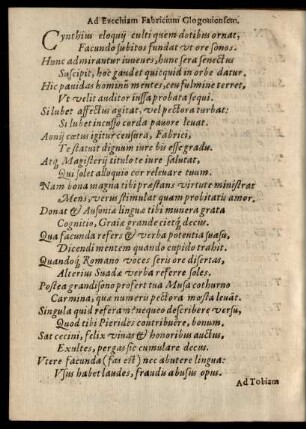 Ad Esechiam Fabricium Glogouiensem.
Cynthius eloquij cultiquem dotibus ornat,
Facundo subitos fundat vt ore sonos.
Hunc admirantur iuuenes, hunc sera senectus
Suscipit, hoc gaudet quitquid in orbe datur.
Hic pauidas hominū mentes, ceu fulmine terret,
Vt velit auditor iussa probata sequi.
Si lubet affectus agitat, vel pectora turbat:
Si lubet incusso corda pauore leuat.
Aonij cœtus igitur censura, Fabrici,
Te statuit dignum iure bis esse gradu.
Atq; Magisterij titulo te iure salutat,
Qui solet alloquio cor releuare tuum.
Nam bona magna tibi præstans virtute ministrat
Mens, veri stimulat quam probitatis amor.
Donat & Ausoniæ lingua tibi munera grata
Cognitio, Graiæ grande citetq́; decus.
Qua facunda refers & verba potentia suasu,
Dicendi mentem quando cupido trahit.
Quandoq́; Romano voces seris ore disertas,
Alterius Suadæ verba referre soles.
Postea grandisono profert tua Musa cothurno
Carmina, quæ numeris pectora mœsta leuāt.
Singula quid referam? nequeo describere versu,
Quod tibi Pierides contribuêre, bonum.
Sat cecini, felix viuas & honoribus auctus,
Exultes, pergas sic cumulare decus.
Vtere facunda (fas est) nec abutere lingua:
Vsus habet laudes, fraudis abusus opus.
Ad Tobiam